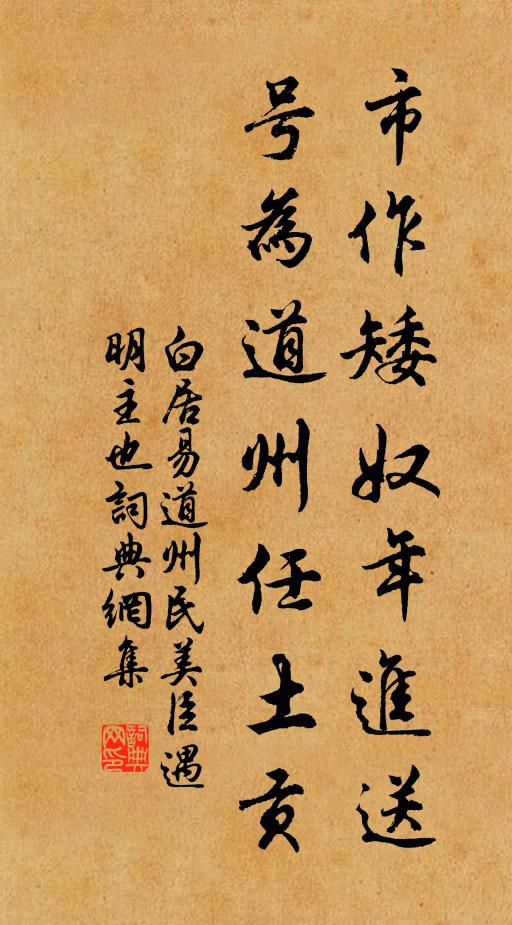 市作矮奴年進送
号為道州任土貢
白居易道州民美臣遇
明主也詞典網集
詞典
网印